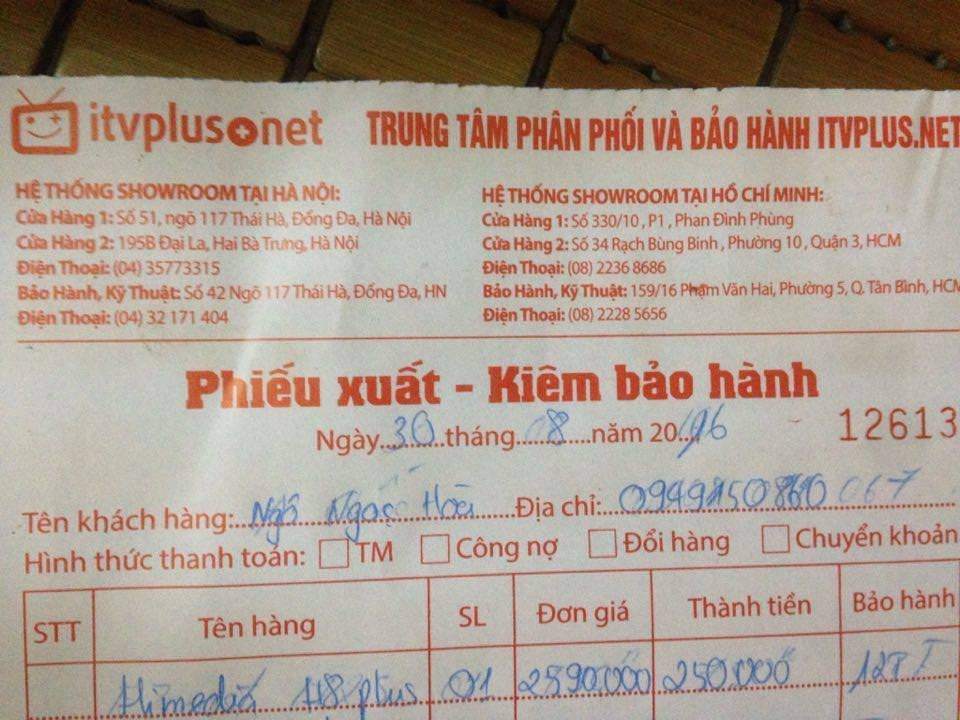 itvplus.net TRUNG TÂM PHÂN PHỐI VÀ BẢO HÀNH ITVPLUS.NET
HỆ THỐNG SHOWROOM TẠI HÀ NỘI:
Cửa Hàng 1: Số 51, ngõ 117 Thái Hà, Đống Đa, Hà Nội
Cửa Hàng 2: 195B Đại La, Hai Bà Trưng, Hà Nội
Điện Thoại: (04) 35773315
Bảo Hành, Kỹ Thuật: Số 42 Ngõ 117 Thái Hà, Đống Đa, HN
Điện Thoại: (04) 32 171 404
HỆ THỐNG SHOWROOM TẠI HỒ CHÍ MINH:
Cửa Hàng 1: Số 330/10 , P1 , Phan Đình Phùng
Cửa Hàng 2: Số 34 Rạch Bùng Binh , Phường 10 , Quận 3, HCM
Điện Thoại: (08) 2236 8686
Bảo Hành, Kỹ Thuật: 159/16 Phạm Văn Hai, Phường 5, Q. Tân Bình, HCM
Điện Thoại: (08) 2228 5656
Phiếu xuất - Kiêm bảo hành
Ngày 30 tháng 08 năm 2016 12613
Tên khách hàng: Ngô Ngọc Địa chỉ:
Hình thức thanh toán: TM Công nợ Đổi hàng Chuyển khoản
STT Tên hàng SL Đơn giá Thành tiền Bảo hành
Himedia H8 plus 01 2590.000 250.000 12T